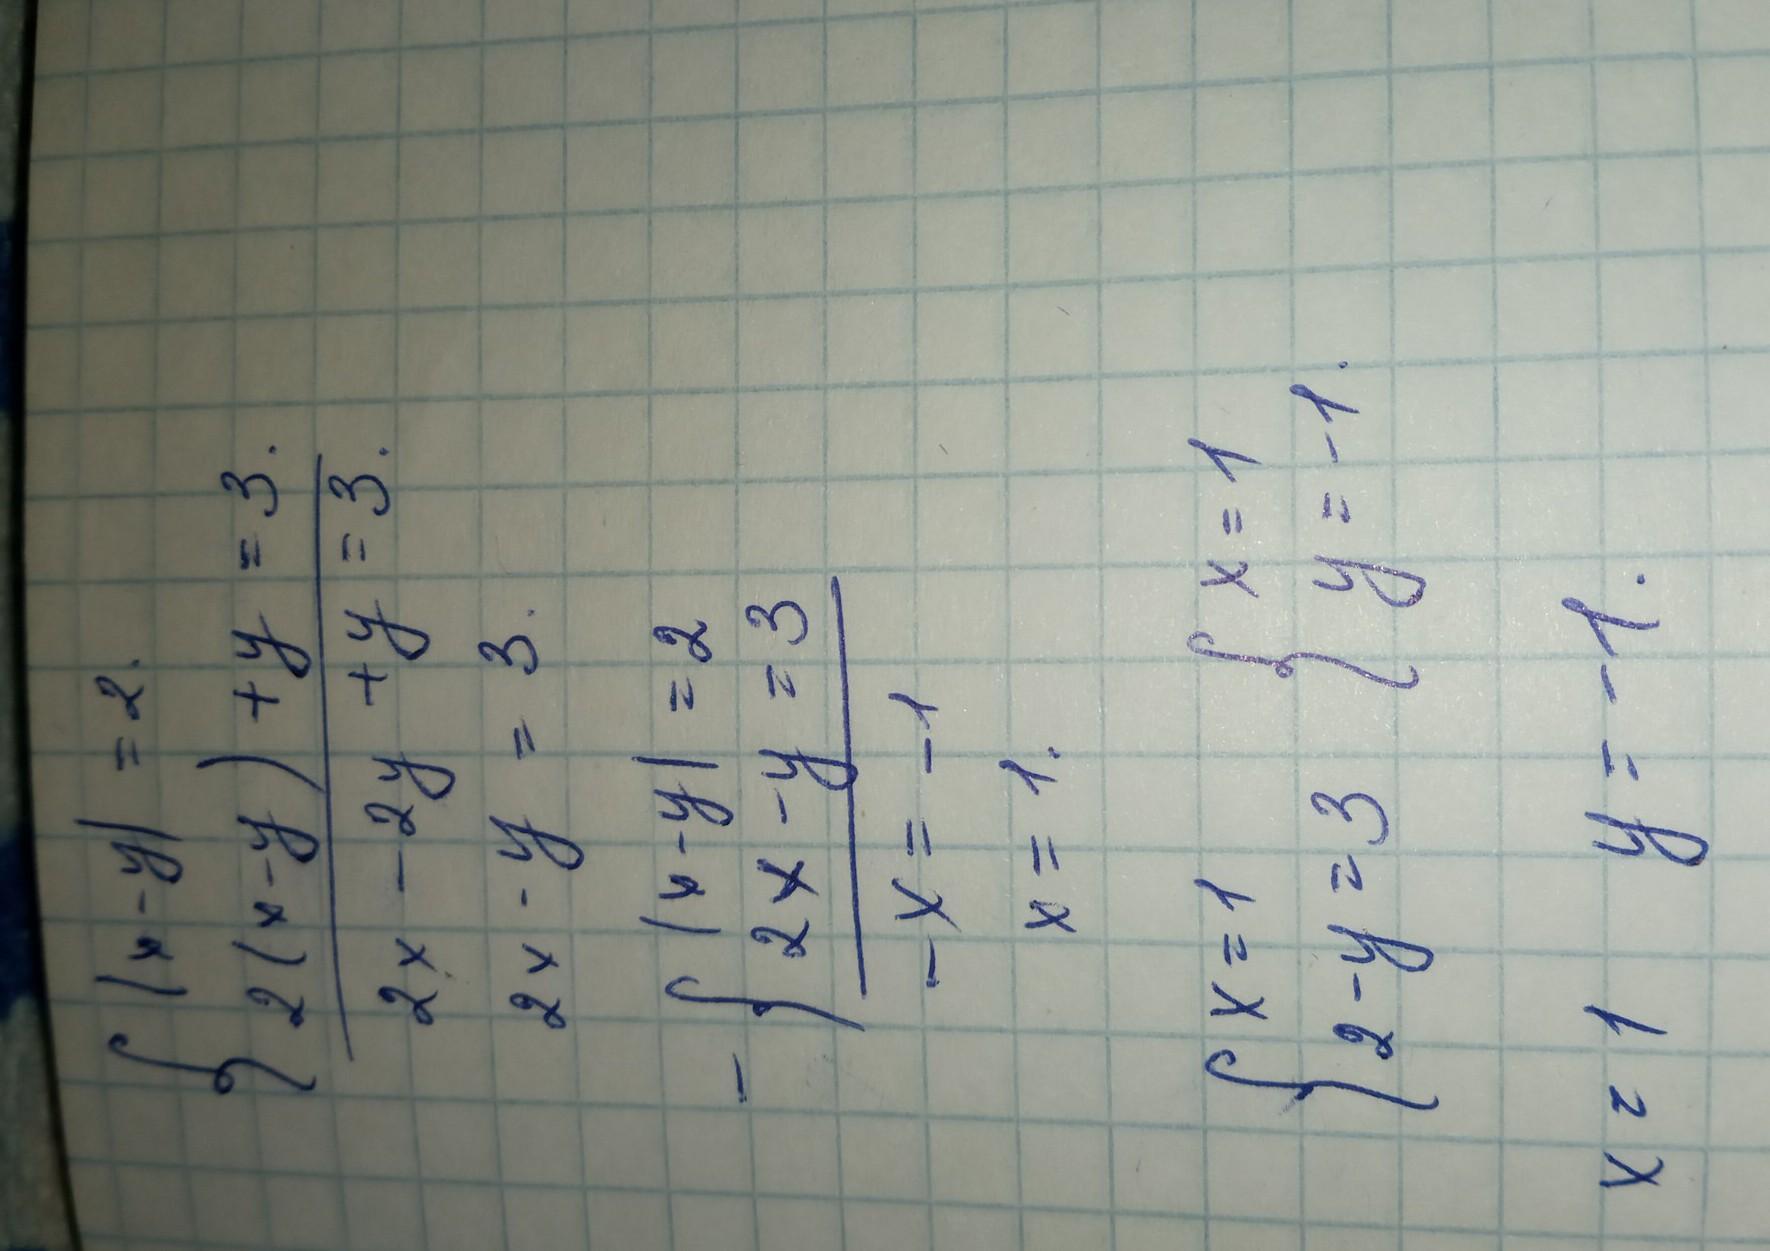 { |x-y| = 2.
2(x-y) + y = 3.
2x - 2y + y = 3.
2x - y = 3.
- { |x-y| = 2
2x - y = 3
- x = -1
x = 1.
{ x = 1 { x = 1
2 - y = 3 y = -1.
x = 1 y = -1.